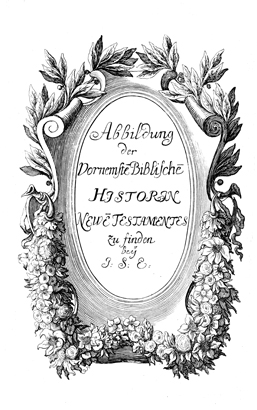 Abbildung
der
Vornemste Biblischē
HISTORIN
NEWĒ TESTAMENTES
zu finden
beij
J. S. E.